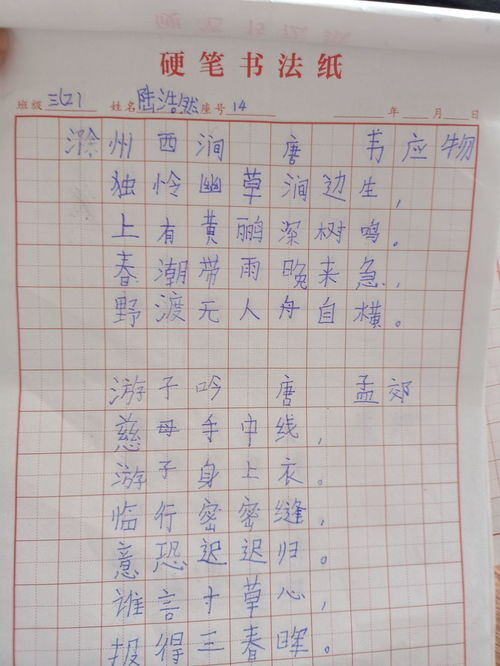 硬笔书法纸
班级 三(2) 姓名 陆浩然 座号 14 年 月 日
滁州西涧 唐 韦应物
独怜幽草涧边生,
上有黄鹂深树鸣。
春潮带雨晚来急,
野渡无人舟自横。
游子吟 唐 孟郊
慈母手中线,
游子身上衣。
临行密密缝,
意恐迟迟归。
谁言寸草心,
报得三春晖。